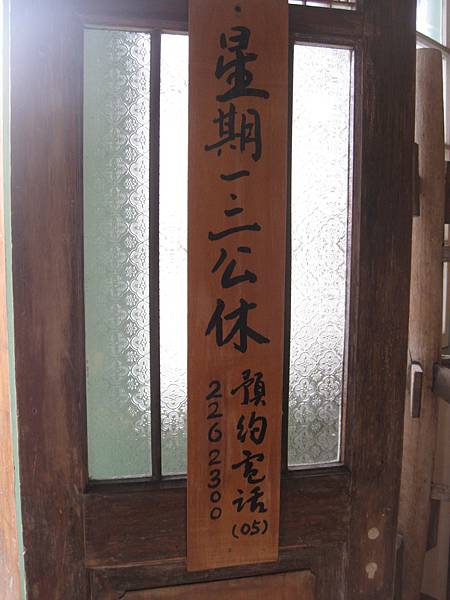 星期一三公休
預約電話(05)
2262300